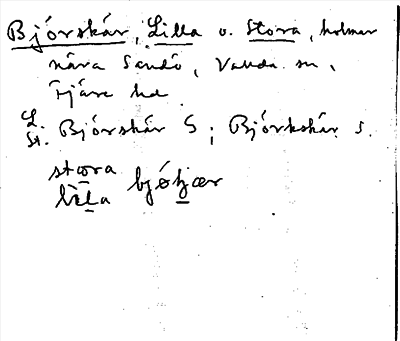 Björskär, Lilla o. Stora, holmar
nära Sandö, Valda sn,
Fjäre hd
L. St. Björskär S; Björkskär S.
stora
lila bjöʂær